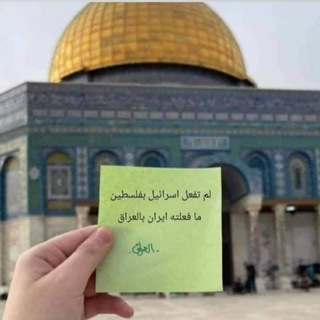 لم تفعل اسرائيل بفلسطين
ما فعلته ايران بالعراق